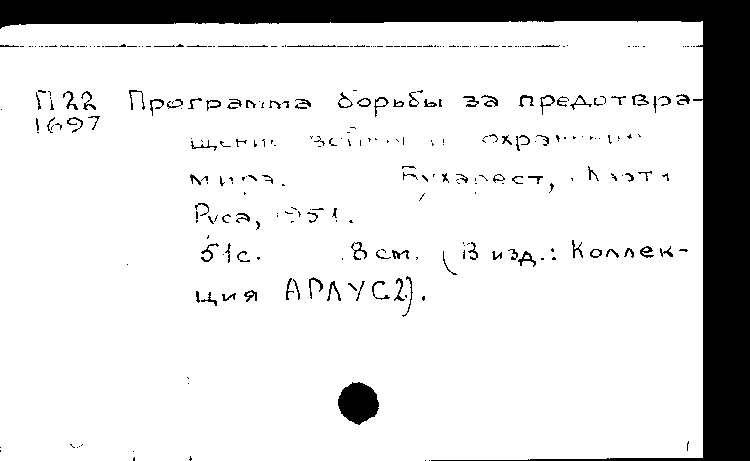 П22 Программа борьбы за предотвра-
1697
щение войны и охранение
мира. Бухарест, Карта
Руса, 1951.
51с. 8 см. (В изд.: Коллек-
ция АРЛУС2).